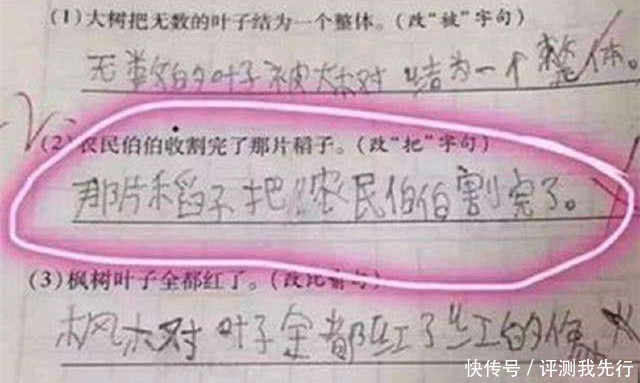 (1)大树把无数的叶子结为一个整体。(改"被"字句)
无数的叶子被大树结为一个整体。
(2)农民伯伯收割完了那片稻子。(改"把"字句)
那片稻子把农民伯伯割完了。
(3)枫树叶子全都红了。(改比喻句)
枫树叶子全都红了红的像
快传号/评测我先行